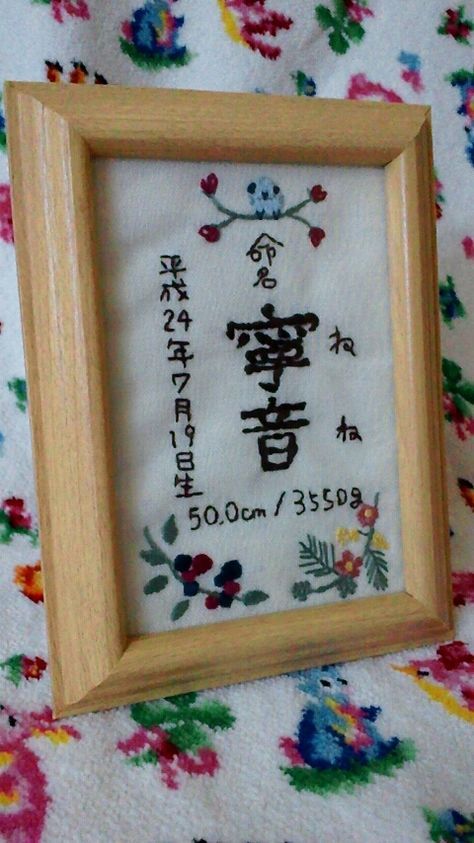 命名
寧音
ねね
平成24年7月19日生
50.0cm/3550g